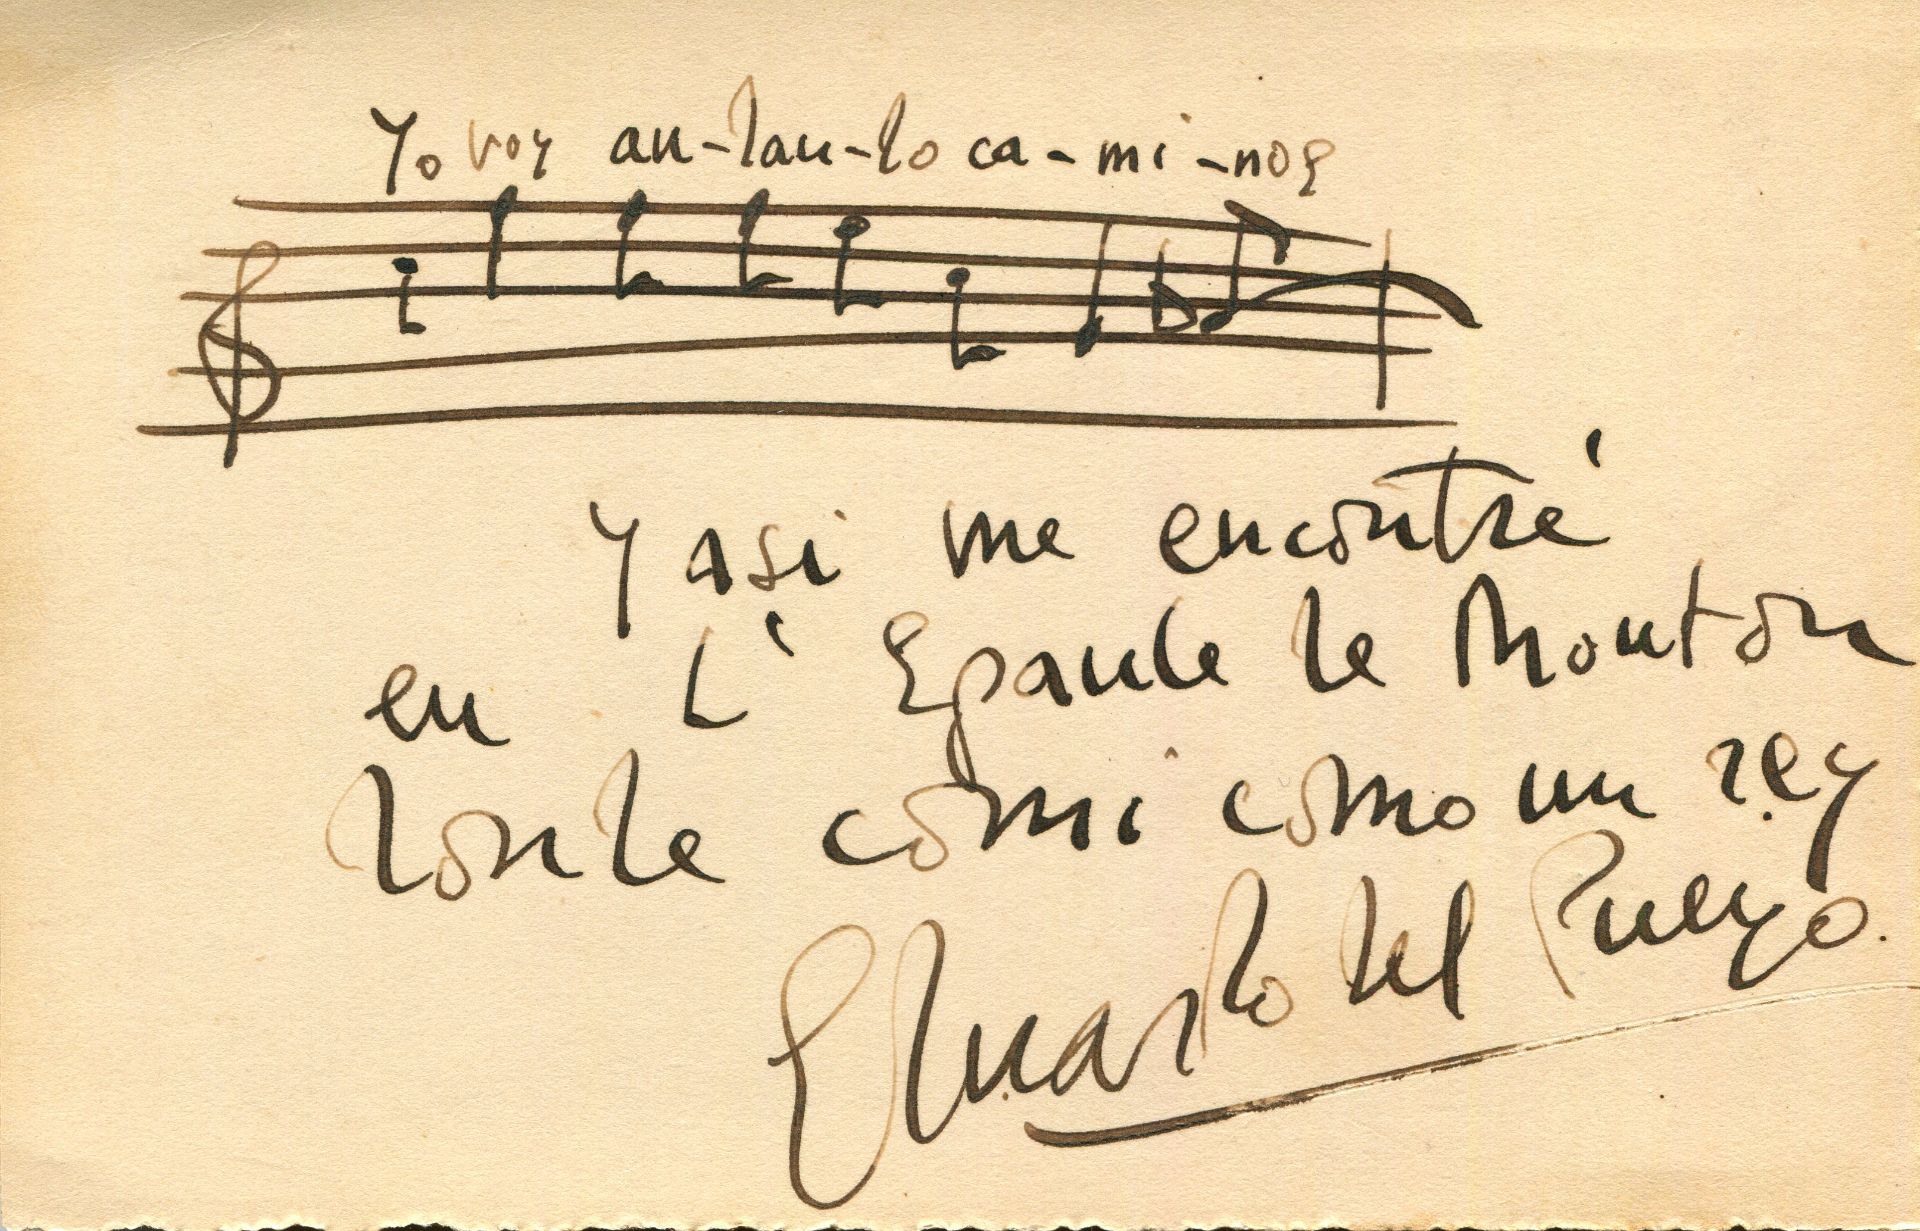 Yo voy an-dan-do ca-mi-nos
Y asi me encontré
en L'Epaule de Mouton
donde comi como un rey
Eduardo del Pueyo.